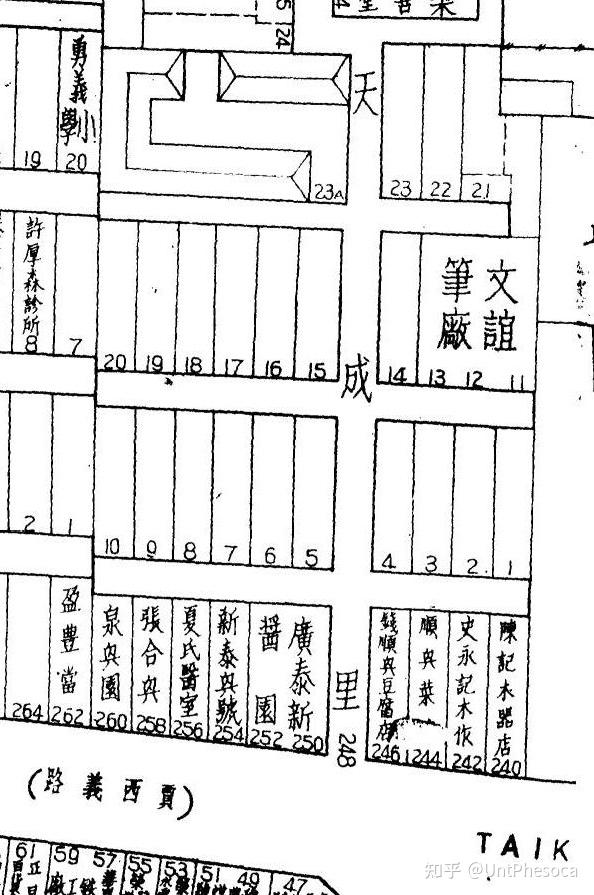 24
天
勇義小學
19
20
23A
23
22
21
許厚森診所
8
7
文誼筆廠
20
19
18
17
16
15
14
13
12
11
成
2
1
10
9
8
7
6
5
4
3
2
1
264
盈豐當
262
泉興園
260
張合興
258
夏氏醫室
256
新泰興號
254
廣泰新醬園
252
250
里
248
錢順興豆腐店
246
順興菜
244
史永記木作
242
陳記木器店
240
(路義西賈)
TAIK
61
59
57
55
53
51
49
47
知乎 @UntPhesoca